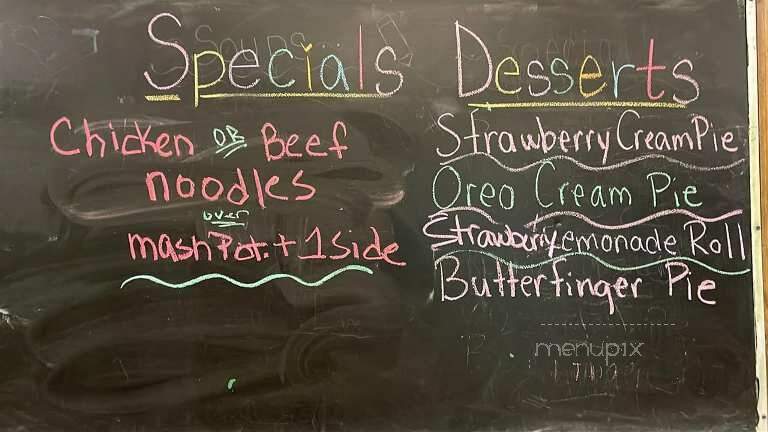 Specials
Chicken OR Beef
noodles
over
mash Pot. + 1 side
Desserts
Strawberry Cream Pie
Oreo Cream Pie
Strawberry Lemonade Roll
Butterfinger Pie
menupix